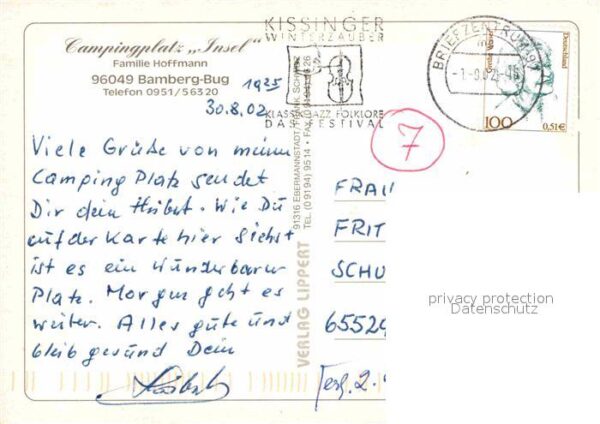 Campingplatz „Insel"
Familie Hoffmann
96049 Bamberg-Bug
Telefon 0951/56320
1925
30.8.02
Viele Grüße von meinem
Camping Platz sendet
Dir dein Heibert. Wie Du
auf der Karte hier siehst
ist es ein wunderbarer
Platz. Morgen geht es
weiter. Alles gute und
bleib gesund Dein
KISSINGER
WINTERZAUBER
KLASSIK JAZZ FOLKLORE
DAS FESTIVAL
BRIEFZENTRUM 97
mg
Deutschland
100
0,51€
7
VERLAG LIPPERT
91316 EBERMANNSTADT
TEL. (09194) 9514
FRAU
FRIT
SCHU
6552
privacy protection
Datenschutz